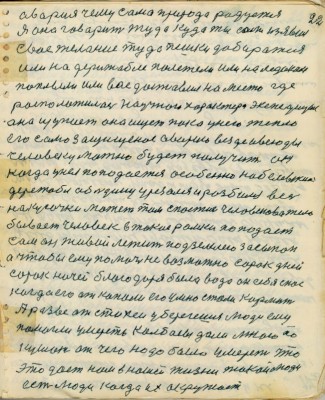 22
авария чему сама природа радуется
Я она говарит туда куда ты сам изявил
Свае желание туда пешки добиратся
или на держабле полетели или на ледаках
поплыли или вас доставили на место где
росположилас научного характера Экспедиция
ана изучает ана ищет пока у него тепло
его само защищеное аварию везде всюды
человеку можно будет получит он
когда уже попадается особенно на
нокусочки может там спастис человек а так
бывает человек в такие ролики попадает
Сам он живый лежит под землею засыпан
а чтобы ему помоч не возможно сорок дней
сорок ночей благодоря было вода он себя спас
когда его откопали его умно стали кормит
А разве от стихеи уберегешя люди ему
помогли умереть Колбасы дали много
кушат от чего надо было умереть Это
Это дает нам в нашей жизни такой люди
ест люди когда их окружает